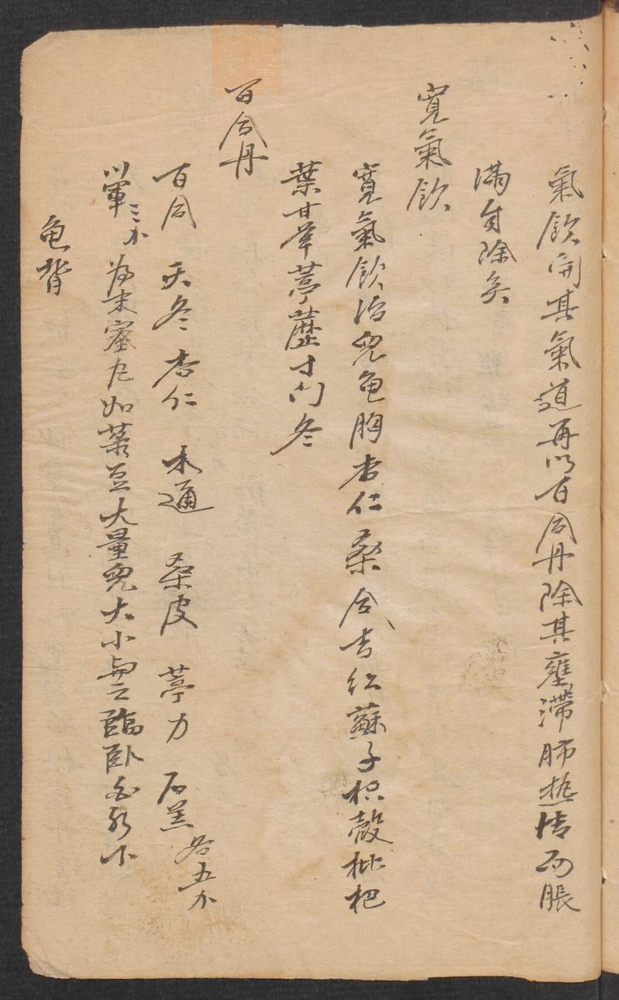 氣飲開其氣道再以百合丹除其壅滯肺热清而脹
滿自除矣
寬氣飲
寬氣飲治兒龟胸杏仁桑合吉红蘇子枳殼枇杷
葉甘草葶藶寸门冬
百合丹
百合 天冬 杏仁 木通 桑皮 葶力 石羔 各五分
军 三分 为末蜜丸如菉豆大量兒大小與之臨卧白
龟背